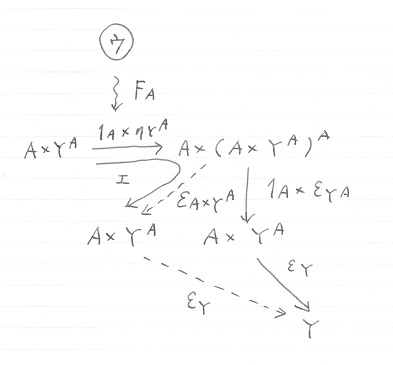 ウ
F_A
1_A × ηY^A
A × Y^A A × (A × Y^A)^A
I ε_{A×Y^A} 1_A × ε_Y^A
A × Y^A A × Y^A
ε_Y ε_Y
Y